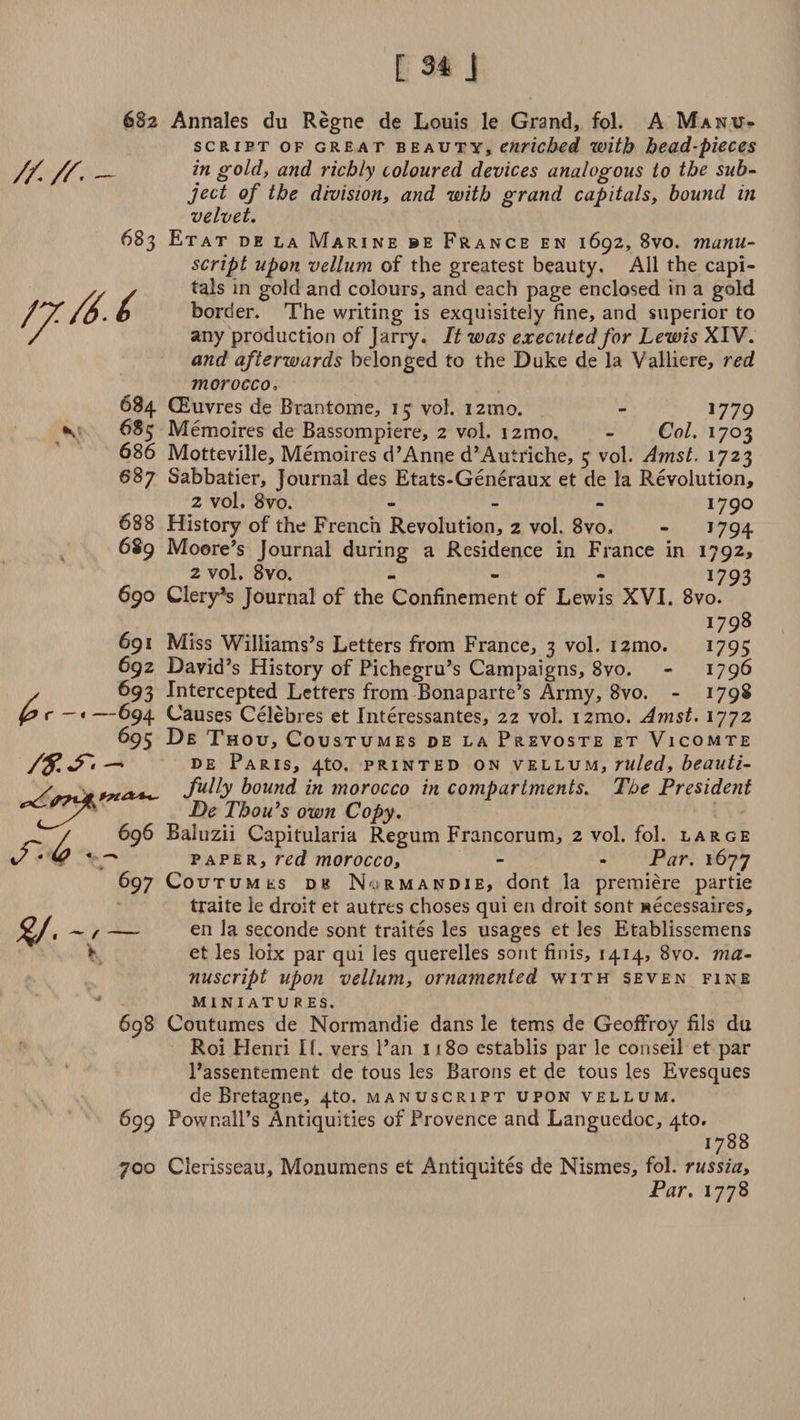 [ 34 ]
682 Annales du Règne de Louis le Grand, fol. A MANU-
SCRIPT OF GREAT BEAUTY, enriched with head-pieces
in gold, and richly coloured devices analogous to the sub-
ject of the division, and with grand capitals, bound in
velvet.
683 ETAT DE LA MARINE DE FRANCE EN 1692, 8vo. manu-
script upon vellum of the greatest beauty. All the capi-
tals in gold and colours, and each page enclosed in a gold
17.16.6 border. The writing is exquisitely fine, and superior to
any production of Jarry. It was executed for Lewis XIV.
and afterwards belonged to the Duke de la Valliere, red
morocco.
684 Œuvres de Brantome, 15 vol. 12mo. - 1779
685 Mémoires de Bassompiere, 2 vol. 12mo. - Col. 1703
686 Motteville, Mémoires d'Anne d'Autriche, 5 vol. Amst. 1723
687 Sabbatier, Journal des Etats-Généraux et de la Révolution,
2 vol. 8vo. - - - 1790
688 History of the French Revolution, 2 vol. 8vo. - 1794
689 Moore's Journal during a Residence in France in 1792,
2 vol. 8vo. - - - 1793
690 Clery's Journal of the Confinement of Lewis XVI. 8vo.
1798
691 Miss Williams's Letters from France, 3 vol. 12mo. 1795
692 David's History of Pichegru's Campaigns, 8vo. - 1796
693 Intercepted Letters from Bonaparte's Army, 8vo. - 1798
694 Causes Célèbres et Intéressantes, 22 vol. 12mo. Amst. 1772
695 DE THOU, COUSTUMES DE LA PREVOSTE ET VICOMTE
DE PARIS, 4to. PRINTED ON VELLUM, ruled, beauti-
fully bound in morocco in compartments. The President
De Thou's own Copy.
696 Baluzii Capitularia Regum Francorum, 2 vol. fol. LARGE
PAPER, red morocco, - - Par. 1677
697 COUTUMES DE NORMANDIE, dont la premiére partie
traite le droit et autres choses qui en droit sont nécessaires,
en la seconde sont traités les usages et les Etablissemens
et les loix par qui les querelles sont finis, 1414, 8vo. ma-
nuscript upon vellum, ornamented WITH SEVEN FINE
MINIATURES.
698 Coutumes de Normandie dans le tems de Geoffroy fils du
Roi Henri II. vers l'an 1180 establis par le conseil et par
l'assentement de tous les Barons et de tous les Evesques
de Bretagne, 4to. MANUSCRIPT UPON VELLUM.
699 Pownall's Antiquities of Provence and Languedoc, 4to.
1788
700 Clerisseau, Monumens et Antiquités de Nismes, fol. russia,
Par. 1778